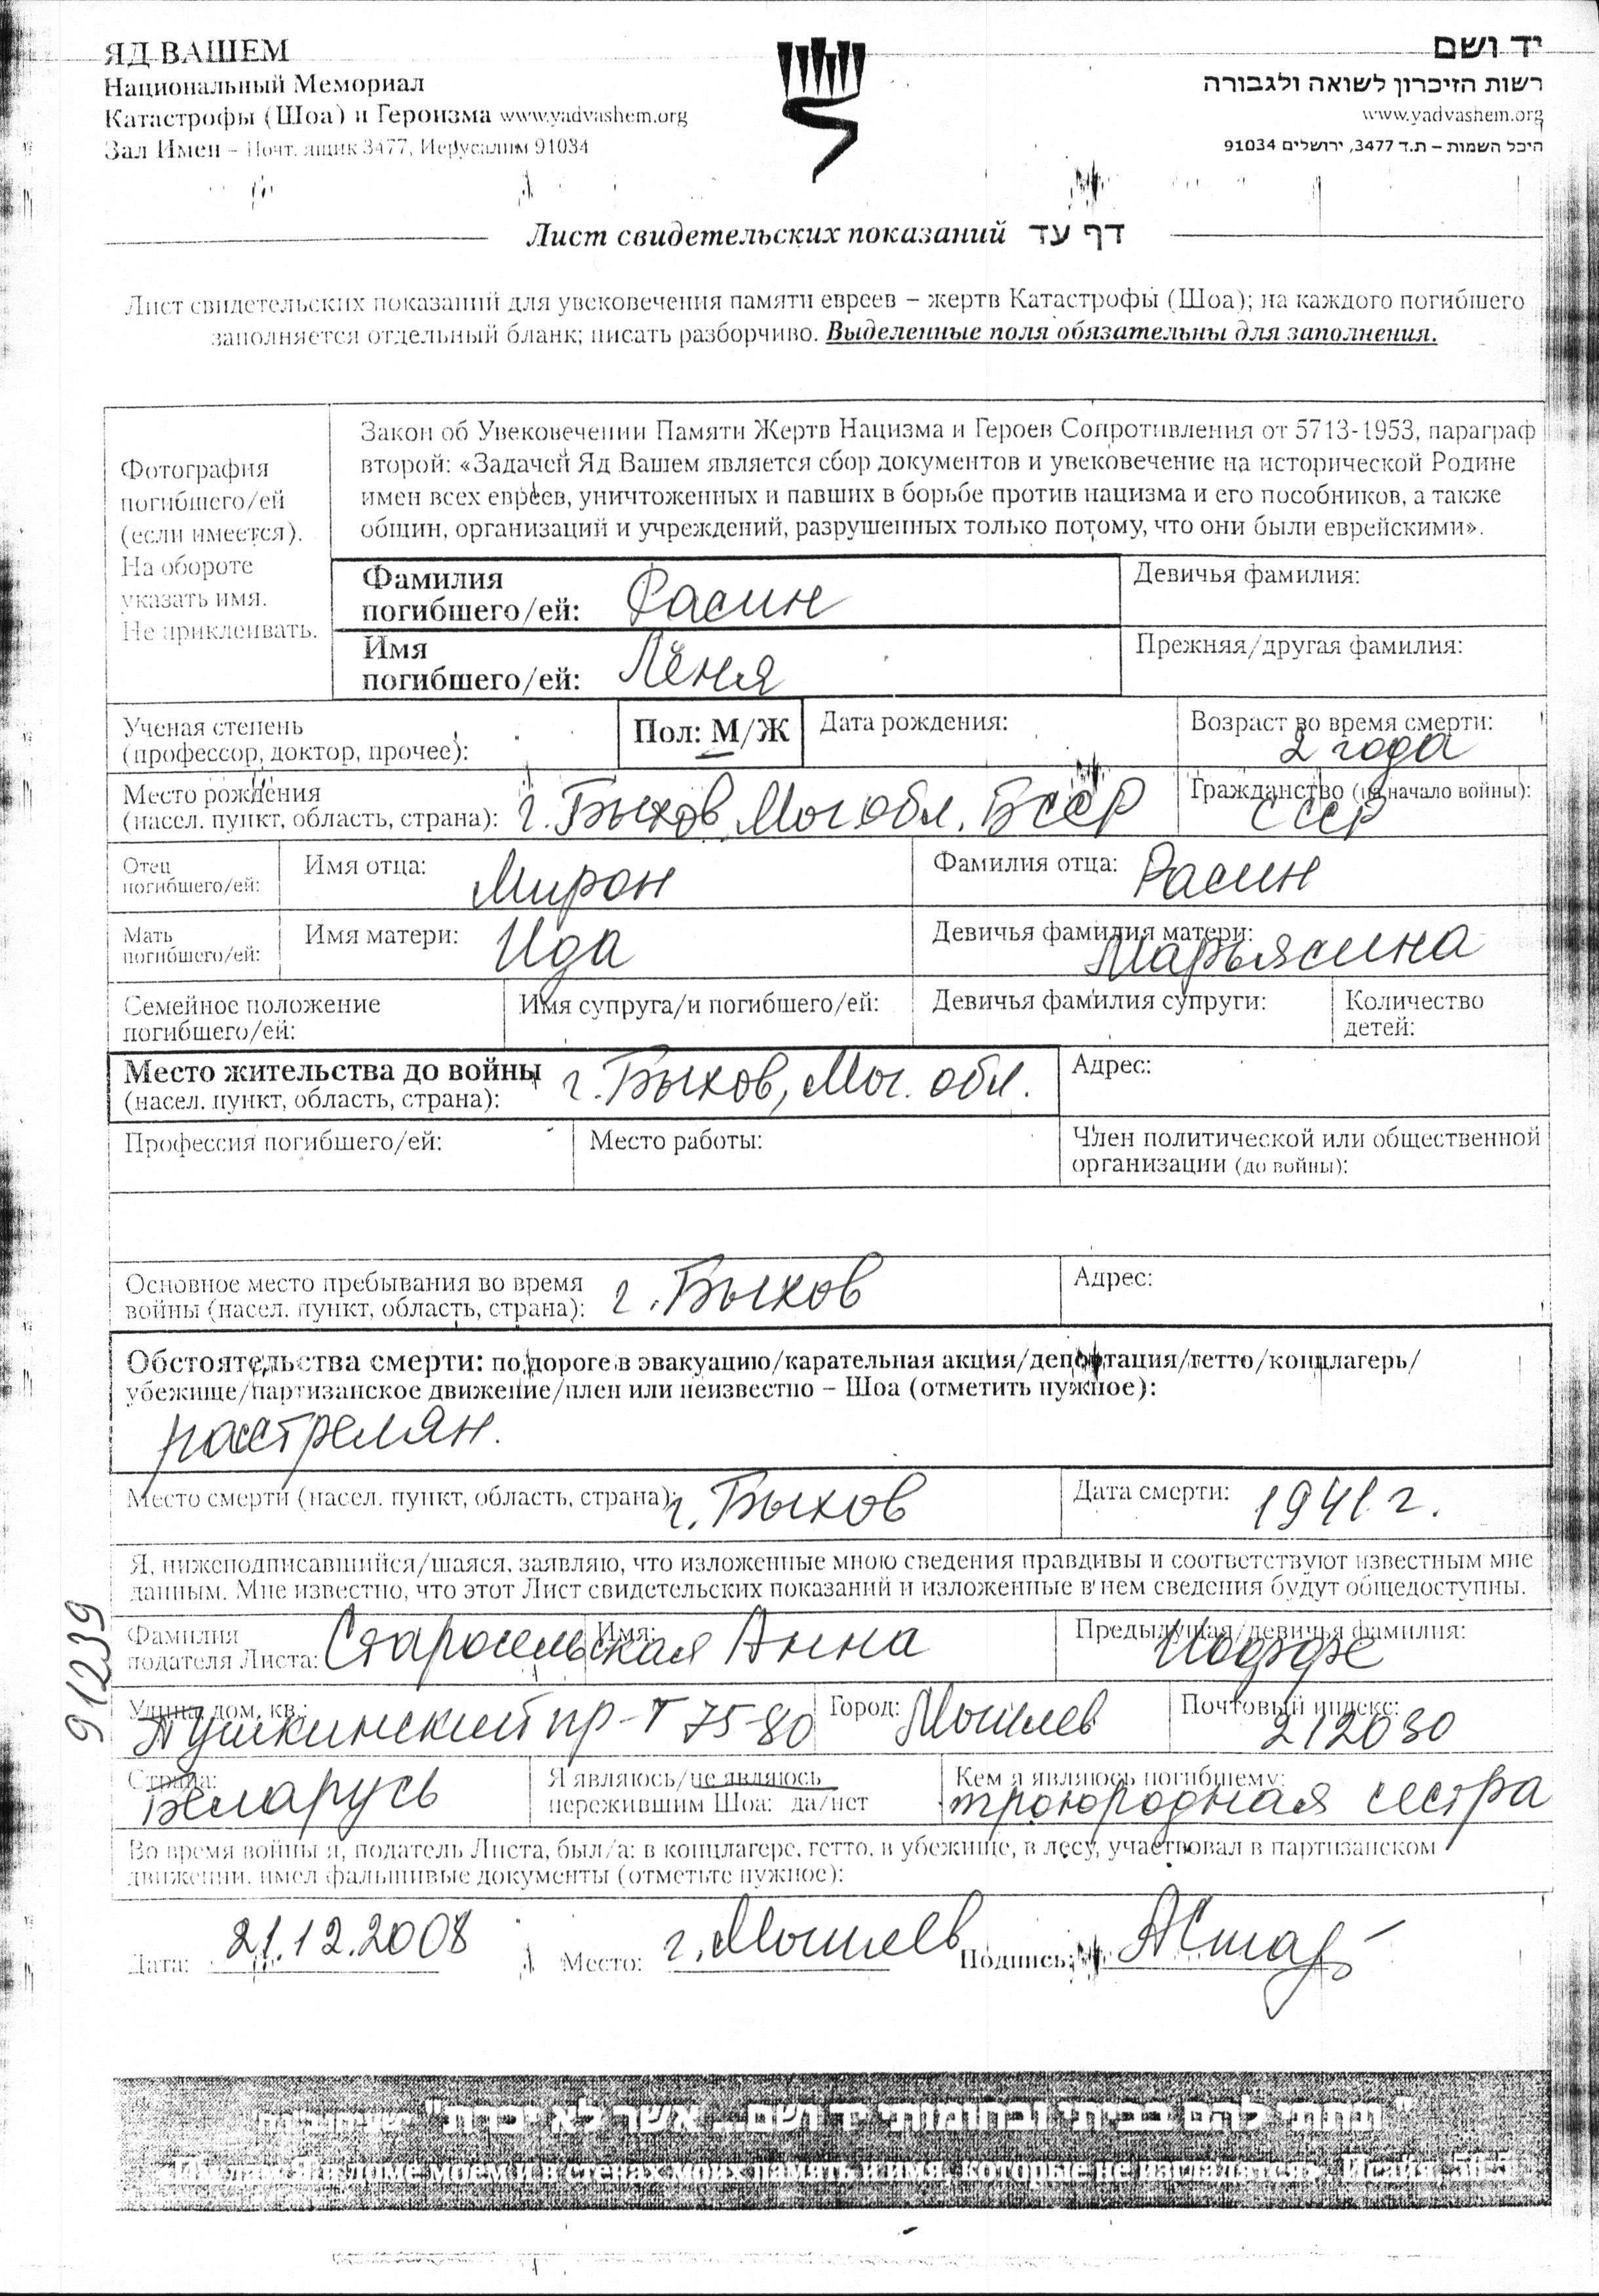 ЯД ВАШЕМ
Национальный Мемориал
Катастрофы (Шоа) и Героизма www.yadvashem.org
Зал Имен – Почт. ящик 3477, Иерусалим 91034
יד ושם
רשות הזיכרון לשואה ולגבורה
www.yadvashem.org
היכל השמות – ת.ד 3477, ירושלים 91034
Лист свидетельских показаний דף עד
Лист свидетельских показаний для увековечения памяти евреев – жертв Катастрофы (Шоа); на каждого погибшего
заполняется отдельный бланк; писать разборчиво. Выделенные поля обязательны для заполнения.
Фотография
погибшего/ей
(если имеется).
На обороте
указать имя.
Не приклеивать.
Закон об Увековечении Памяти Жертв Нацизма и Героев Сопротивления от 5713-1953, параграф
второй: «Задачей Яд Вашем является сбор документов и увековечение на исторической Родине
имен всех евреев, уничтоженных и павших в борьбе против нацизма и его пособников, а также
общин, организаций и учреждений, разрушенных только потому, что они были еврейскими».
Фамилия
погибшего/ей: Расин
Девичья фамилия:
Имя
погибшего/ей: Лёня
Прежняя/другая фамилия:
Ученая степень
(профессор, доктор, прочее):
Пол: М/Ж
Дата рождения:
Возраст во время смерти:
2 года
Место рождения
(насел. пункт, область, страна): г. Быхов, Мог обл. БССР
Гражданство (на начало войны):
СССР
Отец
погибшего/ей:
Имя отца: Мирон
Фамилия отца: Расин
Мать
погибшего/ей:
Имя матери: Ида
Девичья фамилия матери:
Марьясина
Семейное положение
погибшего/ей:
Имя супруга/и погибшего/ей:
Девичья фамилия супруги:
Количество
детей:
Место жительства до войны
(насел. пункт, область, страна): г. Быхов, Мог. обл.
Адрес:
Профессия погибшего/ей:
Место работы:
Член политической или общественной
организации (до войны):
Основное место пребывания во время
войны (насел. пункт, область, страна): г. Быхов
Адрес:
Обстоятельства смерти: по дороге в эвакуацию/карательная акция/депортация/гетто/концлагерь/
убежище/партизанское движение/плен или неизвестно – Шоа (отметить нужное):
расстрелян.
Место смерти (насел. пункт, область, страна): г. Быхов
Дата смерти: 1941 г.
Я, нижеподписавшийся/шаяся, заявляю, что изложенные мною сведения правдивы и соответствуют известным мне
данным. Мне известно, что этот Лист свидетельских показаний и изложенные в нем сведения будут общедоступны.
91239
Фамилия
подателя Листа: Старосельская
Имя: Анна
Предыдущая/девичья фамилия:
Иоффе
Улица, дом, кв.:
Пушкинский пр-т 75-80
Город: Могилев
Почтовый индекс:
212030
Страна:
Беларусь
Я являюсь/не являюсь
пережившим Шоа: да/нет
Кем я являюсь погибшему:
троюродная сестра
Во время войны я, податель Листа, был/а: в концлагере, гетто, в убежище, в лесу, участвовал в партизанском
движении, имел фальшивые документы (отметьте нужное):
Дата: 21.12.2008 Место: г. Могилев Подпись: АСтар
"ונתתי להם בביתי ובחומותי יד ושם... אשר לא יכרת"
«Им дам Я в доме моем и в стенах моих память и имя, которые не изгладятся». Исайя, 56:5